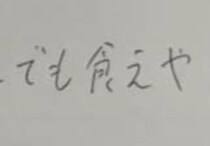 でも食えや